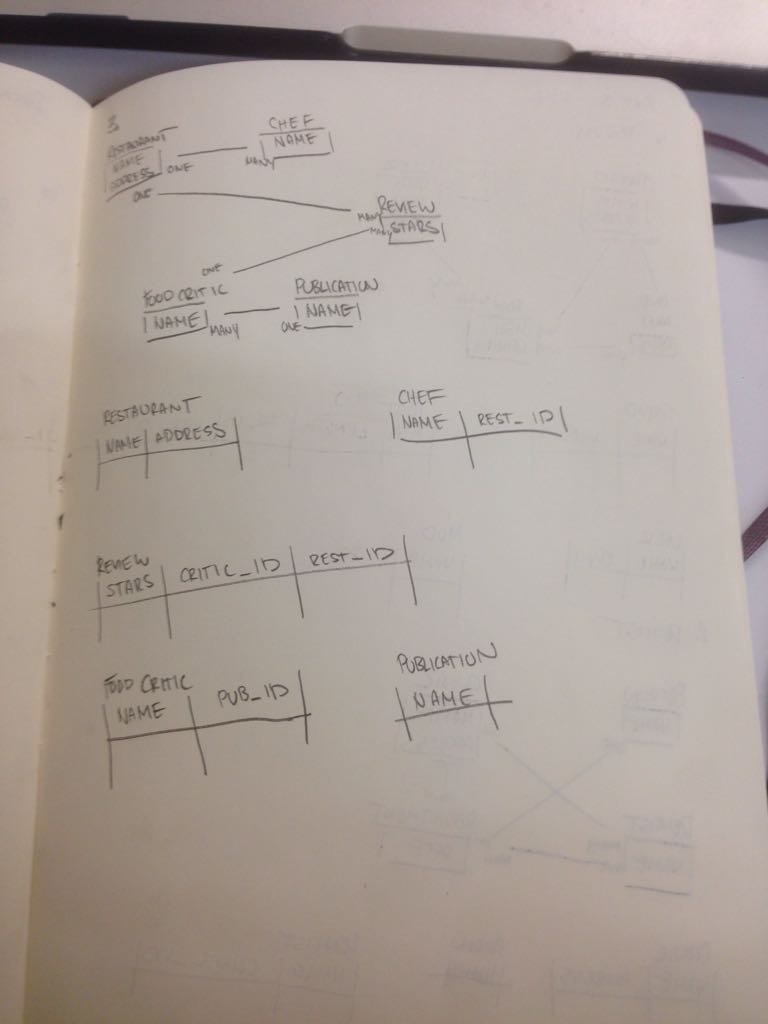 3
RESTAURANT
NAME
ADDRESS
ONE
ONE
CHEF
NAME
MANY
REVIEW
MANY
MANY STARS
ONE
FOOD CRITIC
NAME
MANY
PUBLICATION
NAME
ONE
RESTAURANT
NAME ADDRESS
CHEF
NAME REST_ID
REVIEW
STARS CRITIC_ID REST_ID
FOOD CRITIC
NAME PUB_ID
PUBLICATION
NAME